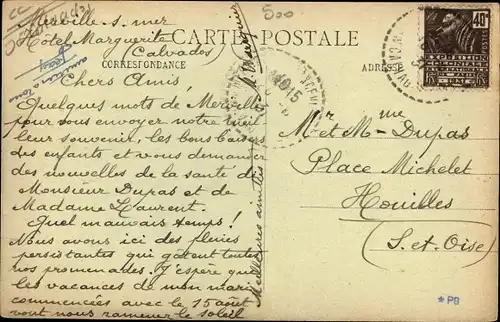 Merville-s-mer
Hôtel Marguerite
(Calvados)
500
CARTE POSTALE
CORRESPONDANCE
ADRESSE
Chers Amis,
Quelques mots de Merville
pour vous envoyer notre meil
leur souvenir, les bons baisers
des enfants et vous demander
des nouvelles de la santé de
Monsieur Dupas et de
Madame Laurent.
Quel mauvais temps!
Nous avons ici des pluies
persistantes qui gâtent toutes
nos promenades. J'espère que
les vacances de mon mari
commencées avec le 15 août
vont nous ramener le soleil
Meilleures amitiés
Mr et Mme Dupas
Place Michelet
Houilles
(S. et Oise)
40c
*PB